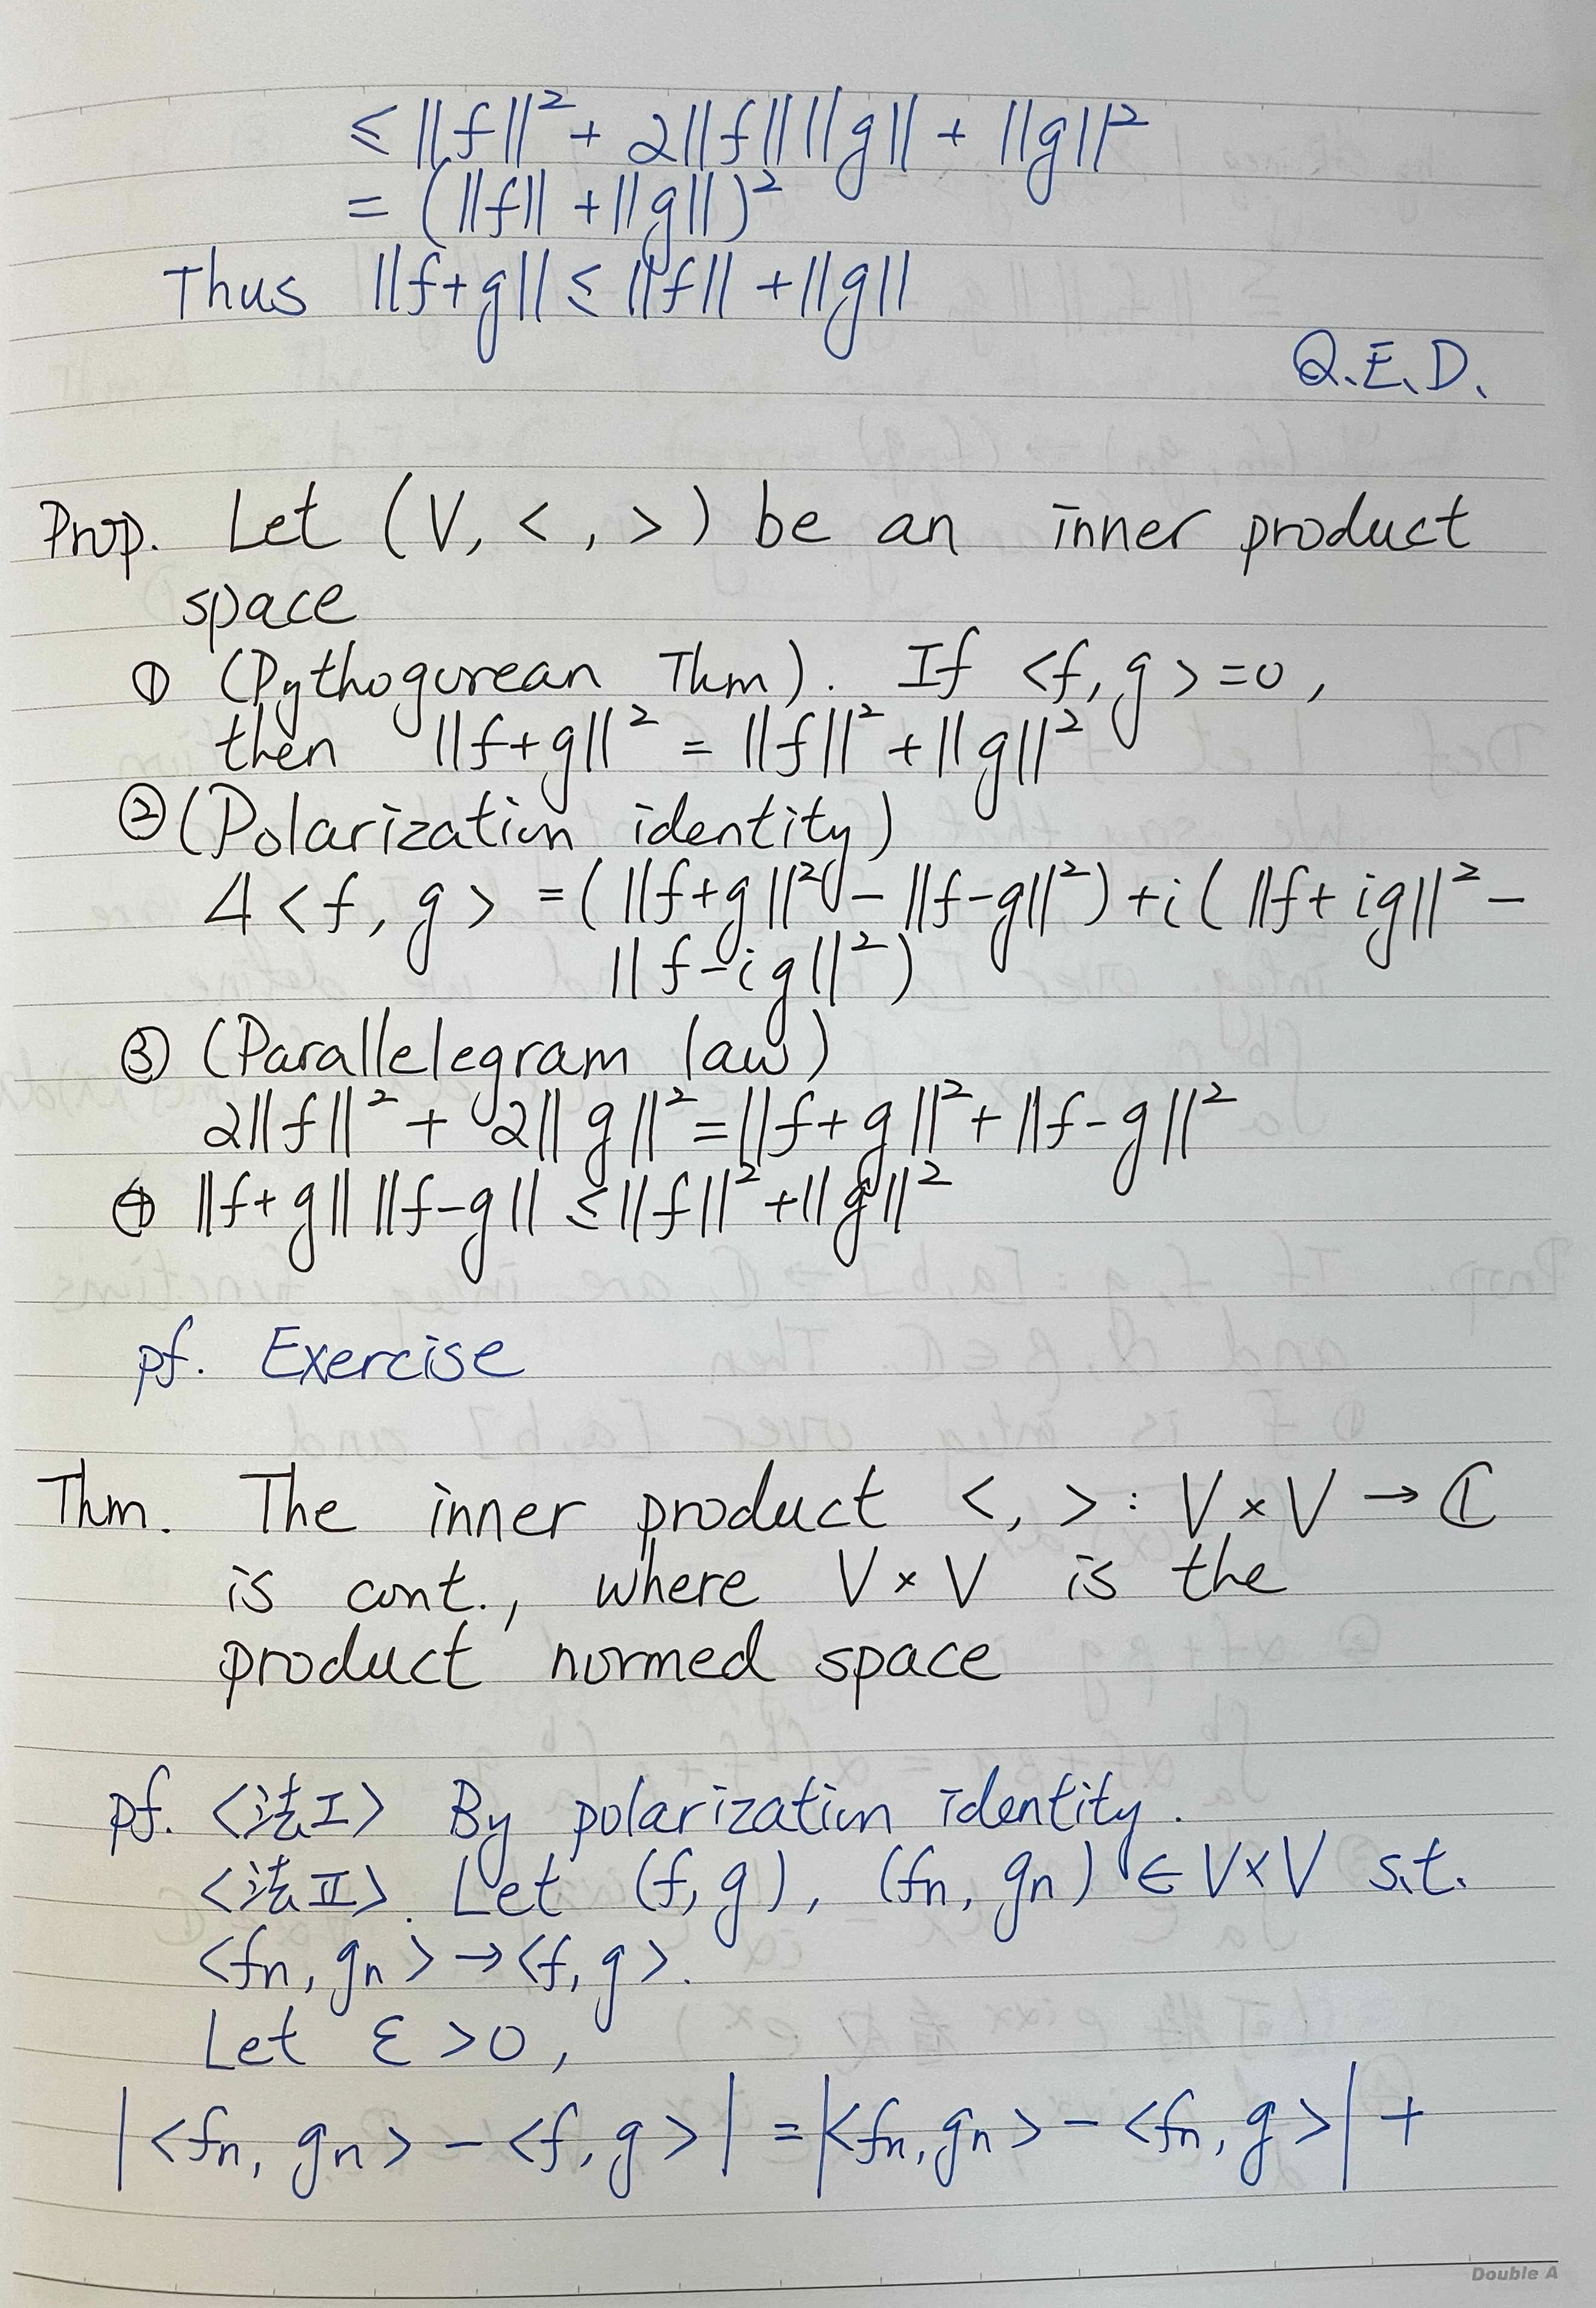 ≤ ||f||² + 2||f|| ||g|| + ||g||²
= (||f|| + ||g||)²
Thus ||f+g|| ≤ ||f|| + ||g||
Q.E.D.
Prop. Let (V, < , >) be an inner product
space
① (Pythogurean Thm). If <f, g> = 0,
then ||f+g||² = ||f||² + ||g||²
② (Polarization identity)
4 <f, g> = (||f+g||² - ||f-g||²) + i( ||f+ig||² -
||f-ig||²)
③ (Parallelegram law)
2||f||² + 2||g||² = ||f+g||² + ||f-g||²
④ ||f+g|| ||f-g|| ≤ ||f||² + ||g||²
pf. Exercise
Thm. The inner product < , > : V × V → ℂ
is cont., where V × V is the
product normed space
pf. <法I> By polarization identity.
<法II>. Let (f, g), (fn, gn) ∈ V×V s.t.
<fn, gn> → <f, g>.
Let ε > 0,
|<fn, gn> - <f, g>| = |<fn, gn> - <fn, g>| +
Double A